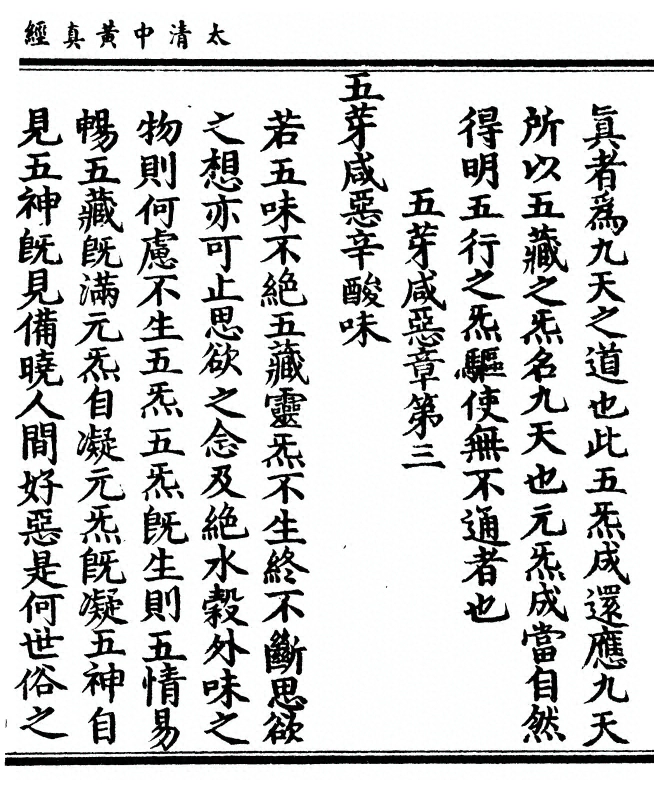 太清中黃真經
眞者爲九天之道也此五炁成還應九天
所以五藏之炁名九天也元炁成當自然
得明五行之炁驅使無不通者也
五芽咸惡章第三
五芽咸惡辛酸味
若五味不絶五藏靈炁不生終不斷思欲
之想亦可止思欲之念及絶水穀外味之
物則何慮不生五炁五炁旣生則五情易
暢五藏旣滿元炁自凝元炁旣凝五神自
見五神旣見備曉人間好惡是何世俗之